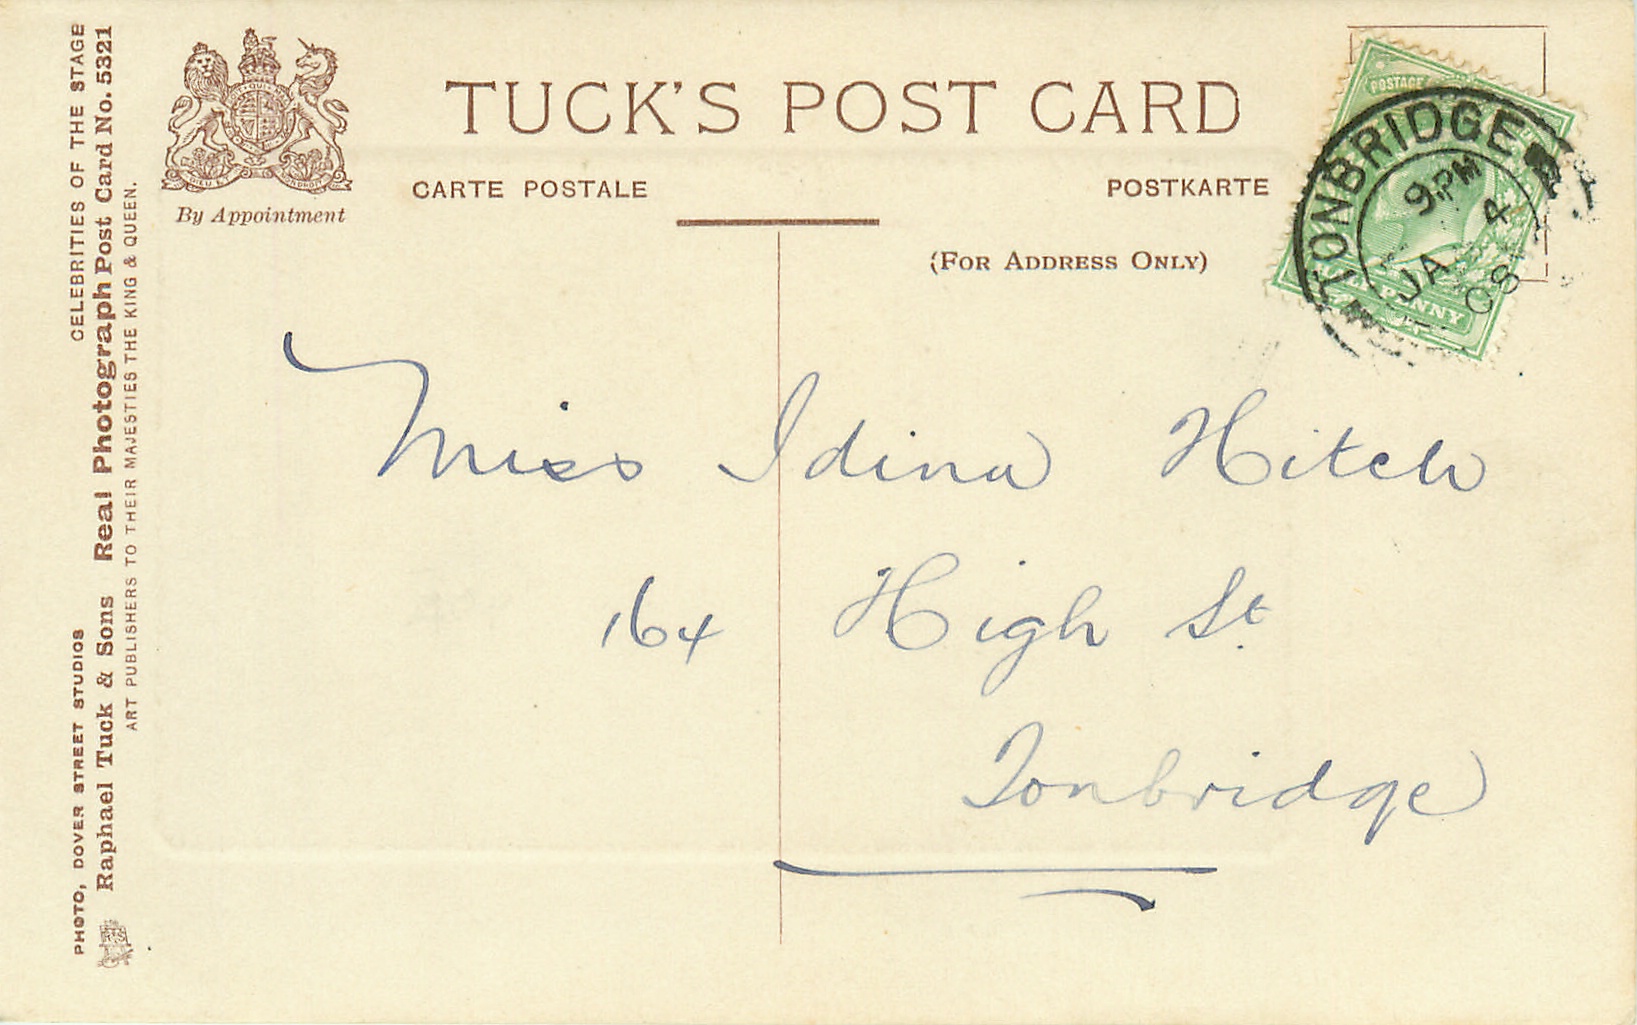 CELEBRITIES OF THE STAGE
PHOTO, DOVER STREET STUDIOS
Raphael Tuck & Sons Real Photograph Post Card No. 5321
ART PUBLISHERS TO THEIR MAJESTIES THE KING & QUEEN.
By Appointment
TUCK'S POST CARD
CARTE POSTALE
POSTKARTE
(FOR ADDRESS ONLY)
POSTAGE
TONBRIDGE
9PM
JA 4
08
Miss Idina Hitch
164 High St.
Tonbridge